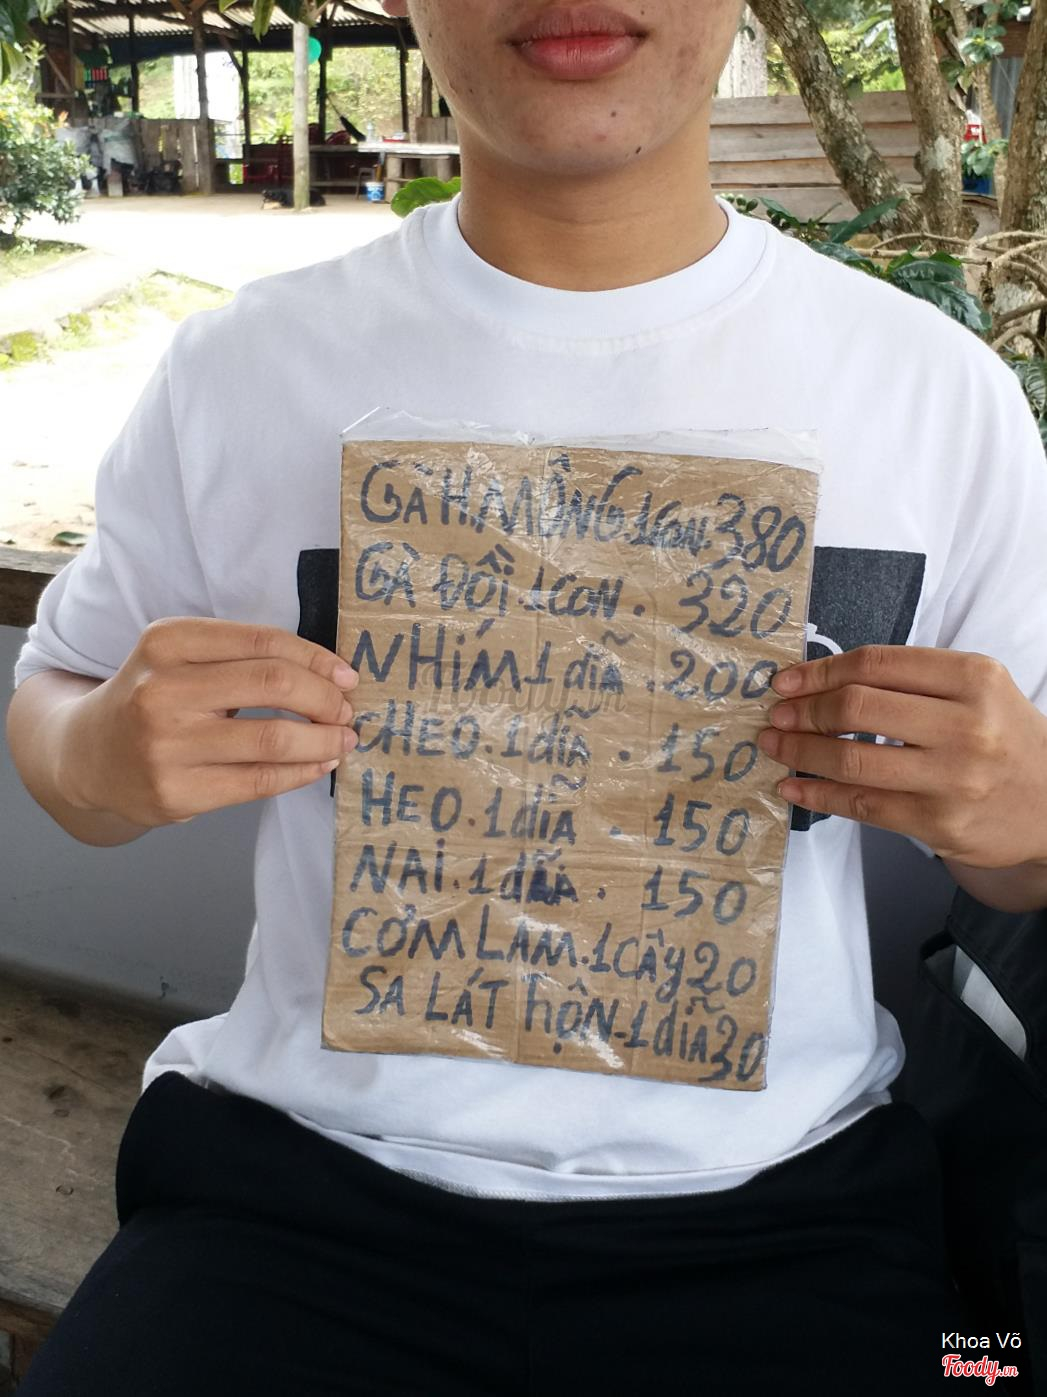 GÀ H'MÔNG.1CON.380
GÀ ĐỒI.1CON.320
NHÍM 1 dĩA.200
CHEO.1dĩA.150
HEO.1dĩA.150
NAI.1dĩA.150
CƠM LAM.1CÂY20
SA LÁT TRỘN-1dĩA30
Foody.vn
Khoa Võ
Foody.vn